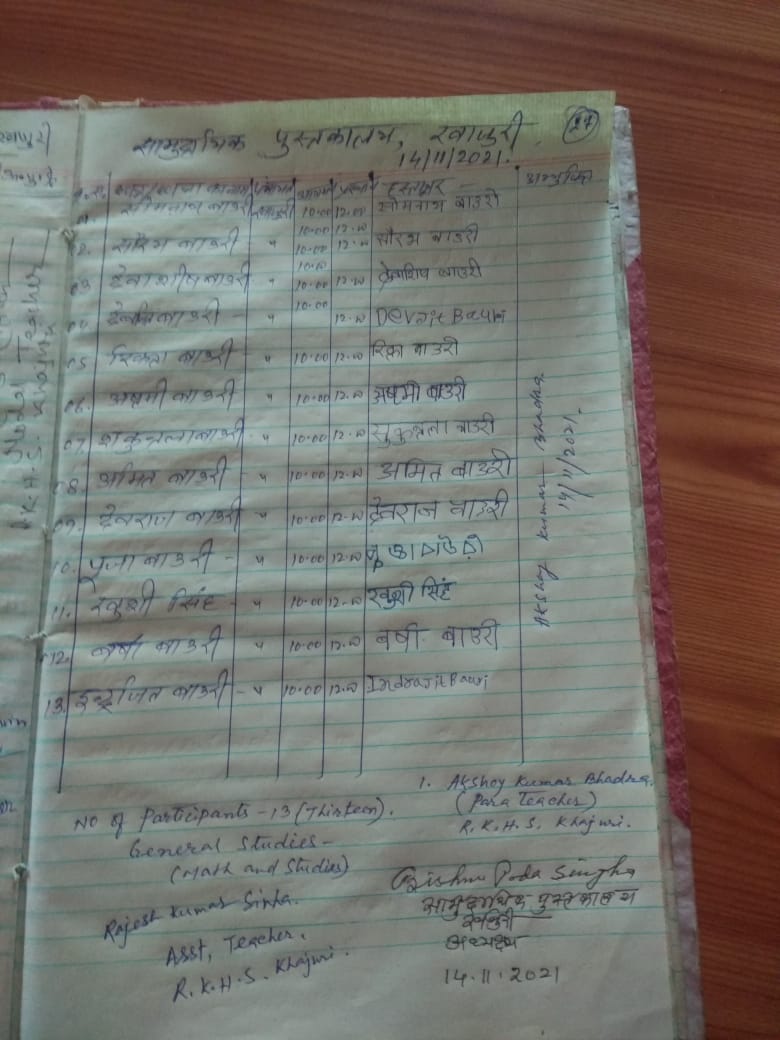 27
सामुदायिक पुस्तकालय, खाजुरी
14/11/2021.
सोमनाथ बाउरी 10:00 12.00 सोमनाथ बाउरी
02. सौरभ बाउरी " 10:00 12.00 सौरभ बाउरी
03. देवाशीष बाउरी " 10:00 12.00 देवाशिष बाउरी
04. बाउरी " 10:00 12.00 Devajit Bauri
05. बाउरी " 10:00 12.00 रिक्ता बाउरी
06. अष्टमी बाउरी " 10:00 12.00 अष्टमी बाउरी
07. शकुन्तला बाउरी " 10:00 12.00 बाउरी
08. अमित बाउरी " 10:00 12.00 अमित बाउरी
09. देवराज बाउरी " 10:00 12.00 देवराज बाउरी
10. पूजा बाउरी - " 10:00 12.00
11. खुशी सिंह - " 10:00 12.00 खुशी सिंह
12. बर्षा बाउरी " 10:00 12.00 बर्षा बाउरी
13. इन्द्रजित बाउरी - " 10:00 12.00 Indrajit Bauri
Akshoy Kumar Bhadra
14/11/2021.
No of Participants - 13 (Thirteen).
General Studies -
(Math and Studies)
Rajesh Kumar Sinha.
Asst, Teacher.
R. K. H. S. Khajuri.
1. Akshoy Kumar Bhadra.
(Para Teacher)
R. K. H. S. Khajuri.
Bishnu Poda Singha
सामुदायिक पुस्तकालय
खाजुरी
अध्यक्ष
14.11.2021